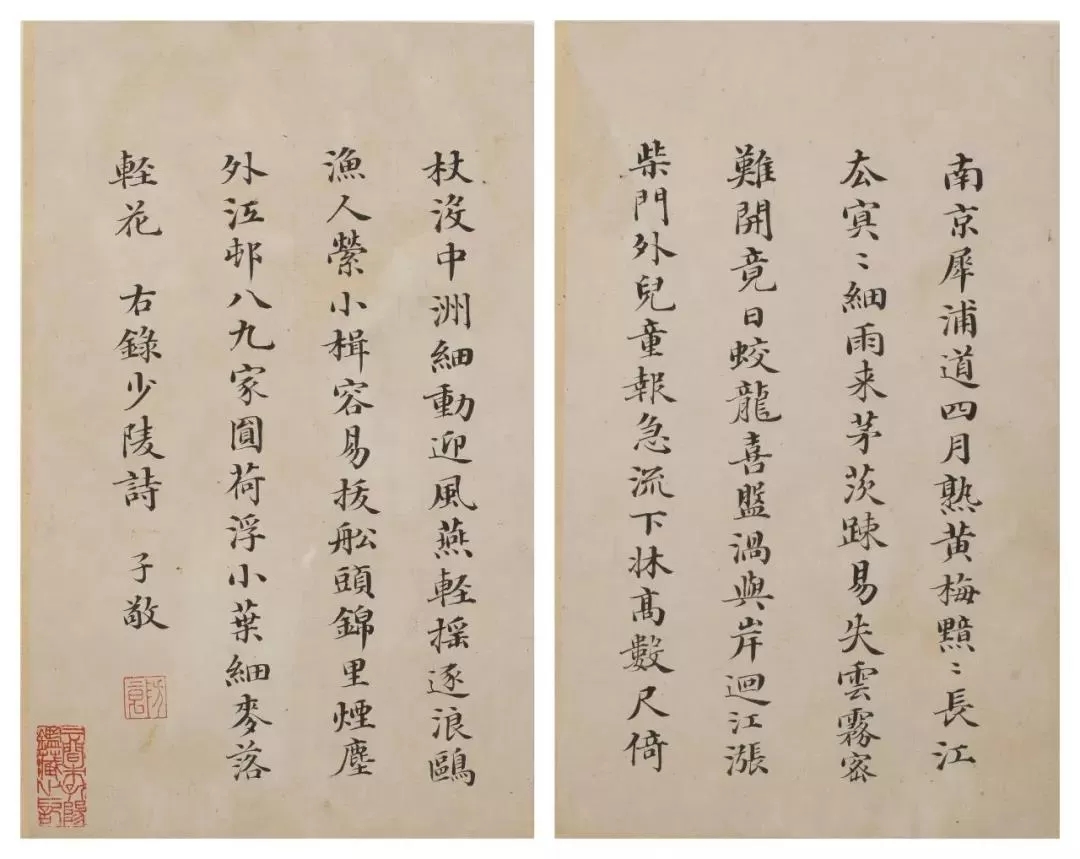 南京犀浦道四月熟黄梅黯〻長江
厺冥〻細雨来茅茨疎易失雲霧密
難開竟日蛟龍喜盤渦與岸迴江漲
柴門外兒童報急流下牀高數尺倚
杖沒中洲細動迎風燕軽揺逐浪鷗
漁人縈小楫容易拔舩頭錦里煙塵
外江邨八九家圓荷浮小葉細麥落
軽花 右錄少陵詩 子敬